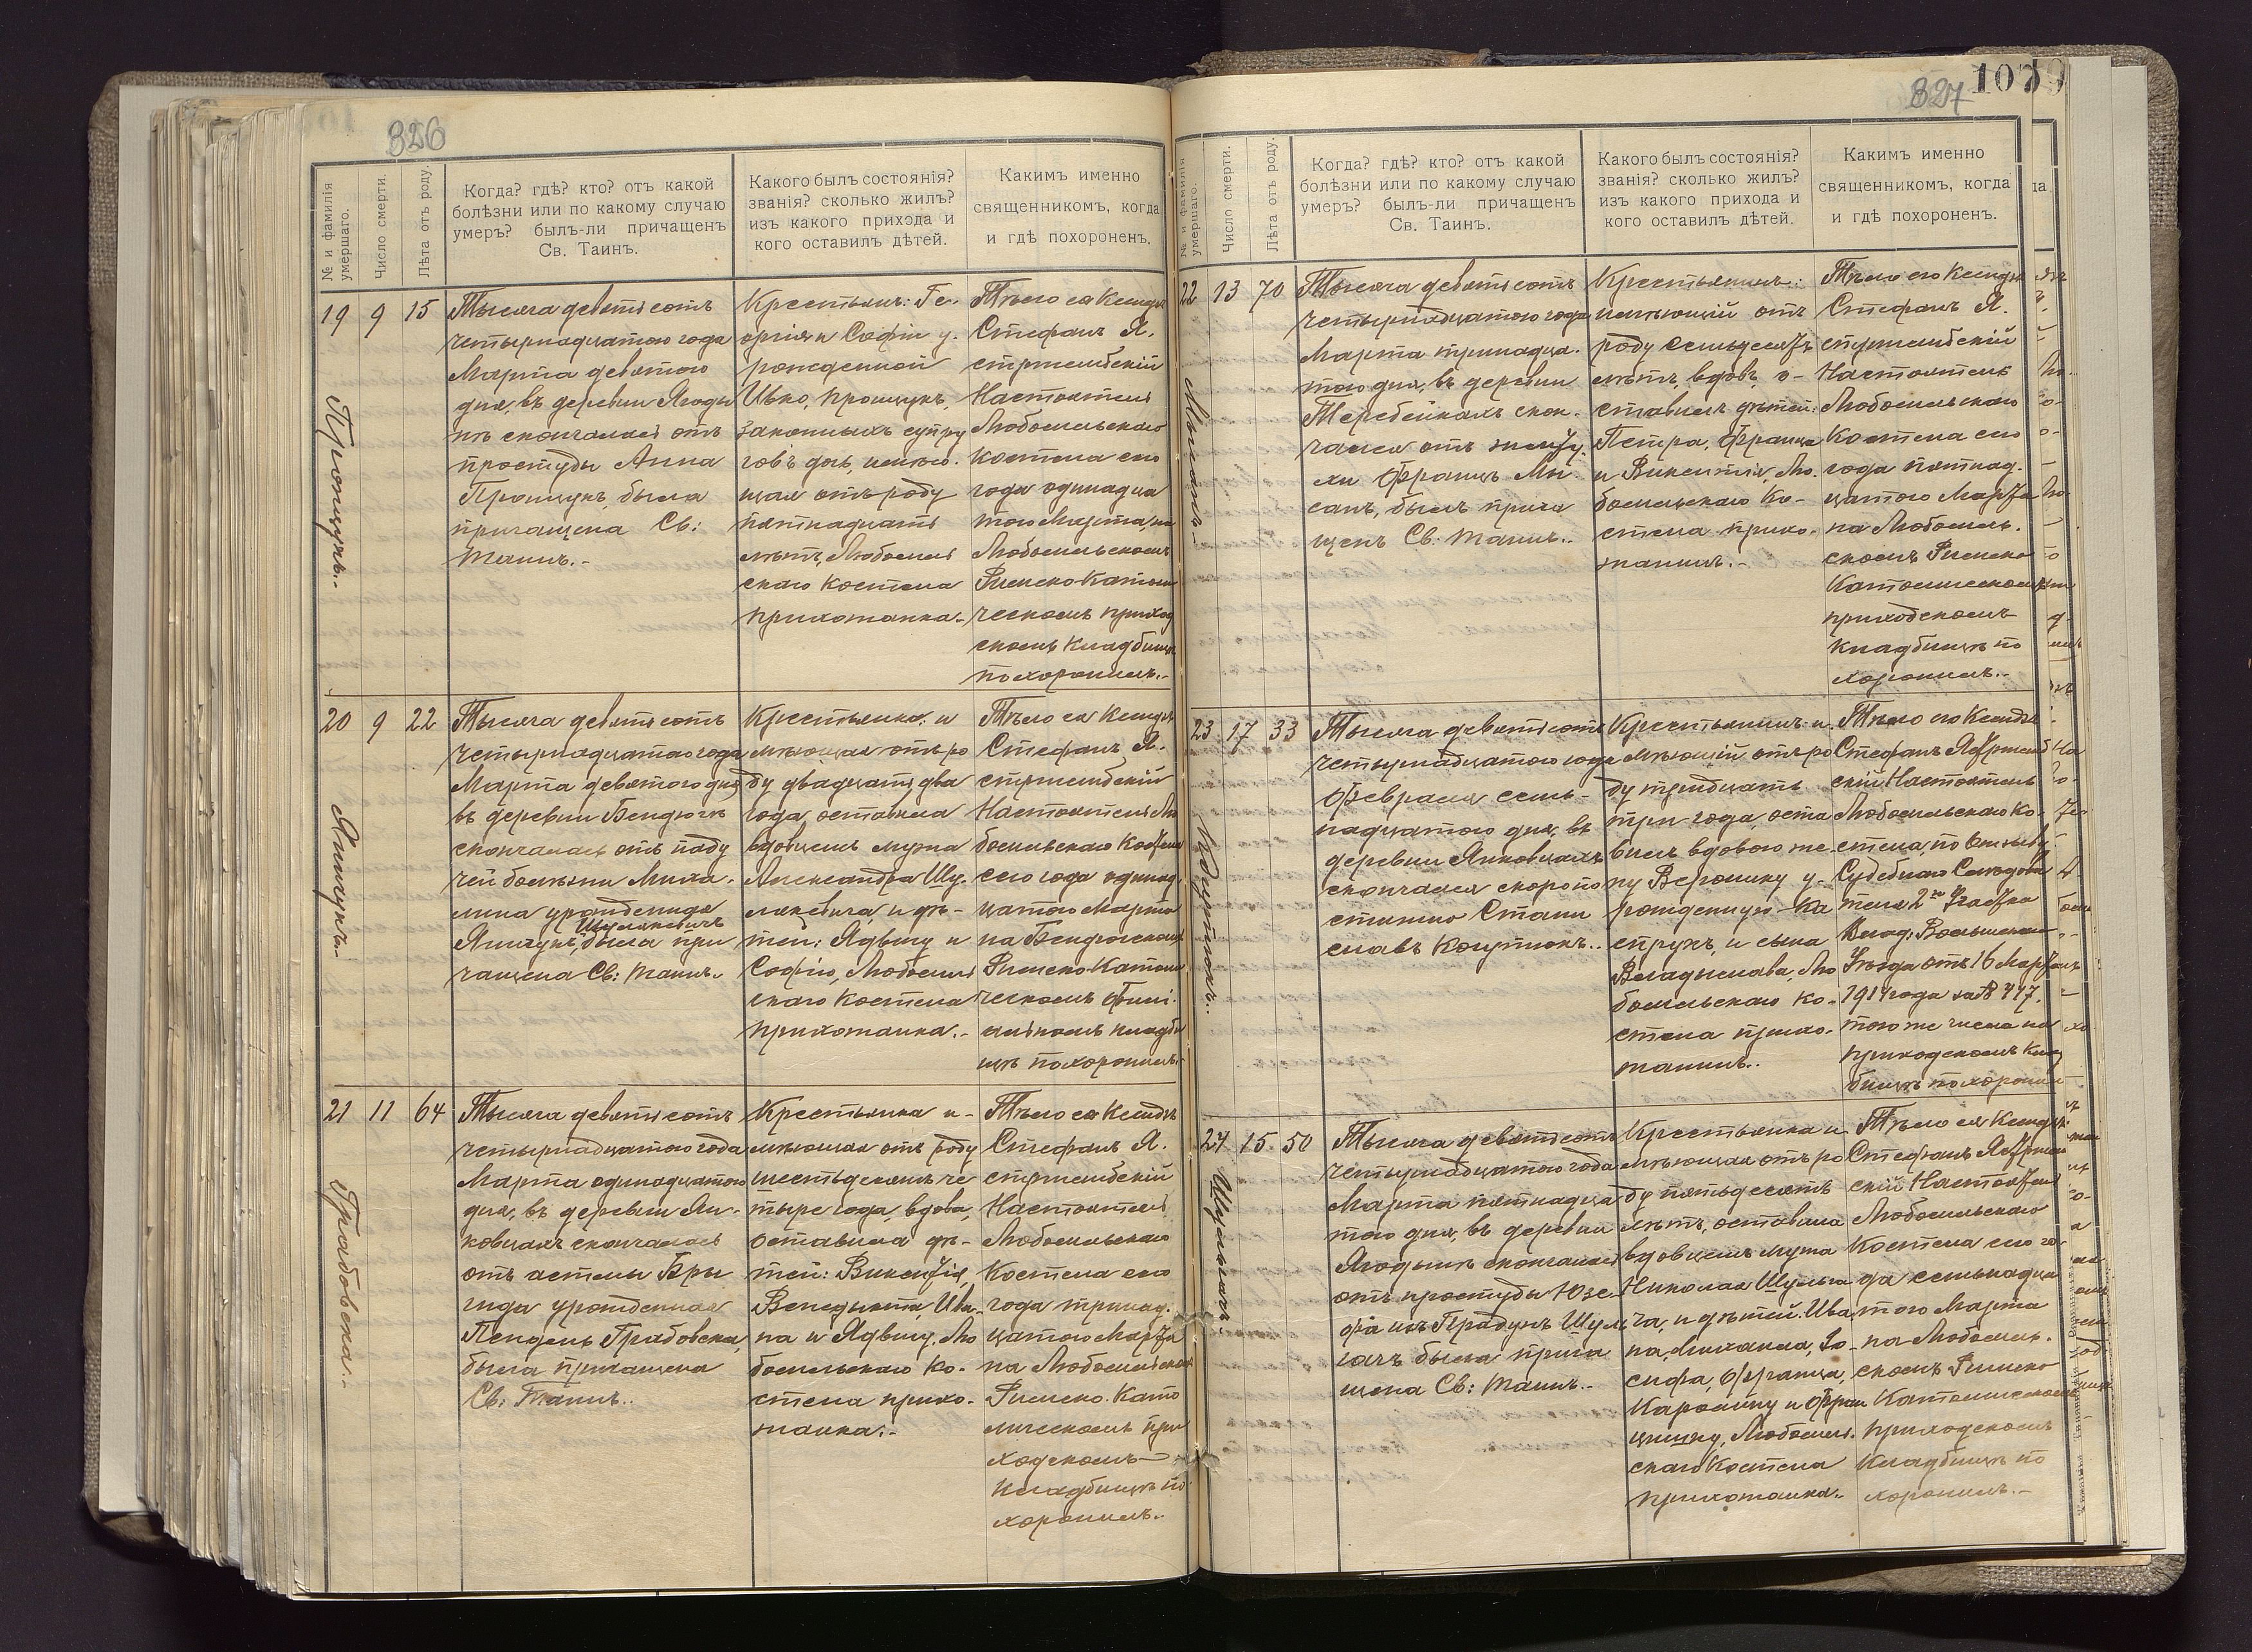 326
№ и фамилія
умершаго.
Число смерти.
Лѣта отъ роду.
Когда? гдѣ? кто? отъ какой
болѣзни или по какому случаю
умеръ? былъ-ли причащенъ
Св. Таинъ.
Какого былъ состоянія?
званія? сколько жилъ?
изъ какого прихода и
кого оставилъ дѣтей.
Какимъ именно
священникомъ, когда
и гдѣ похороненъ.
19
Прощукъ.-
9
15
Тысяча девятьсотъ
четырнадцатого года
Марта девятого
дня, въ деревни Ягоды
нѣ скончалась отъ
простуды Анна
Прощукъ, была
причащена Св:
Таинъ.-
Крестьянъ: Ге-
оргія и Софіи у-
рожденной
Прощукъ,
законныхъ супру
говъ дочь, имѣю-
щая отъ роду
пятнадцать
лѣтъ, Любомль
скаго Костела
прихожанка.-
Тѣло ея Ксендзъ
Стефанъ Я-
стржембскій
Настоятель
Любомльскаго
Костела сего
года одинадца
того Марта, на
Любомльскомъ
Римско Католи
ческомъ приход
скомъ Кладбищѣ
похоронилъ.-
20
Янчукъ.-
9
22
Тысяча девятьсотъ
четырнадцатого года
Марта девятого дня,
въ деревни Бендюгѣ
скончалась отъ паду
чей болѣзни Миха-
лина урожденная
Шулякевичъ
Янчукъ, была при
чащена Св: Таинъ.-
Крестьянка, и
мѣющая отъ ро
ду двадцать два
года, оставила
вдовцемъ мужа
Александра Шу-
лякевича, и дѣ-
тей: Ядвигу и
Софію, Любомль
скаго Костела
прихожанка.-
Тѣло ея Ксендзъ
Стефанъ Я-
стржембскій
Настоятель Лю
бомльскаго Костела
сего года одинад
цатого Марта
на Бендюжскомъ
Римско-Католи
ческомъ Фили-
альномъ кладби
щѣ похоронилъ.-
21
Грабовска.-
11
64
Тысяча девятьсотъ
четырнадцатого года
Марта одинадцатого
дня, въ деревни Ян-
ковцахъ скончалась
отъ астмы Бри
гида урожденная
Пендель Грабовска,
была причащена
Св: Таинъ..
Крестьянка и-
мѣющая отъ роду
шестьдесятъ че
тыре года, вдова,
оставила дѣ-
тей: Викентія,
Венедыкта, Ива-
на и Ядвигу, Лю
бомльскаго Ко-
стела прихо-
жанка.-
Тѣло ея Ксендзъ
Стефанъ Я-
стржембскій
Настоятель
Любомльскаго
Костела сего
года тринад-
цатого Марта
на Любомльскомъ
Римско-Като
лическомъ при
ходскомъ
Кладбищѣ по
хоронилъ..
327
107
№ и фамилія
умершаго.
Число смерти.
Лѣта отъ роду.
Когда? гдѣ? кто? отъ какой
болѣзни или по какому случаю
умеръ? былъ-ли причащенъ
Св. Таинъ.
Какого былъ состоянія?
званія? сколько жилъ?
изъ какого прихода и
кого оставилъ дѣтей.
Какимъ именно
священникомъ, когда
и гдѣ похороненъ.
22
13
70
Тысяча девятьсотъ
четырнадцатого года
Марта тринадца-
того дня, въ деревни
Теребейкахъ скон-
чался отъ
Францъ
былъ прича
щенъ Св: Таинъ..
Крестьянинъ:
имѣющій отъ
роду семьдесятъ
лѣтъ, вдовъ, о-
ставилъ дѣтей:
Петра, Франца
и Викентія, Лю-
бомльскаго Ко-
стела прихо-
жанинъ.-
Тѣло его Ксендзъ
Стефанъ Я-
стржембскій
Настоятель
Любомльскаго
Костела сего
года пятнад-
цатого Марта
на Любомль-
скомъ Римско
Католическомъ
приходскомъ
Кладбищѣ по
хоронилъ.-
23
17
33
Тысяча девятьсотъ
четырнадцатого года
Февраля семь-
надцатого дня, въ
деревни Янковцахъ
скончался скоропо
стижно Стани
славъ
Крестьянинъ и-
мѣющій отъ ро
ду тридцать
три года, оста
вилъ вдовою же-
ну Веронику у-
рожденную Ка
спрукъ, и сына
Владыслава, Лю
бомльскаго Ко-
стела прихо-
жанинъ..
Тѣло его Ксендзъ
Стефанъ Ястржемб
скій Настоятель
Любомльскаго Ко-
стела, по отзыву
Судебнаго Слѣдова
теля 2го Участка
Влад: Волынскаго
Уѣзда отъ 16 Марта
1914 года за № 417,
того же числа на
приходскомъ Клад
бищѣ похоронилъ
24
Шульгачъ.-
15
50
Тысяча девятьсотъ
четырнадцатого года
Марта пятнадца
того дня, въ деревни
Ягодынѣ скончалась
отъ простуды Юзе
фа изъ Прадунъ Шуль
гачъ была прича
щена Св: Таинъ.-
Крестьянка и
мѣющая отъ ро
ду пятьдесятъ
лѣтъ, оставила
вдовцемъ мужа
Николая Шульга
ча, и дѣтей: Ива
на, Михаила, Іо-
сифа, Франца,
Каролину и Фран
цишку, Любомль-
скаго Костела
прихожанка.-
Тѣло ея Ксендзъ
Стефанъ Ястржемб
скій Настоятель
Любомльскаго
Костела сего го-
да семьнадца
того Марта
на Любомль-
скомъ Римско
Католическомъ
приходскомъ
Кладбищѣ по
хоронилъ.-